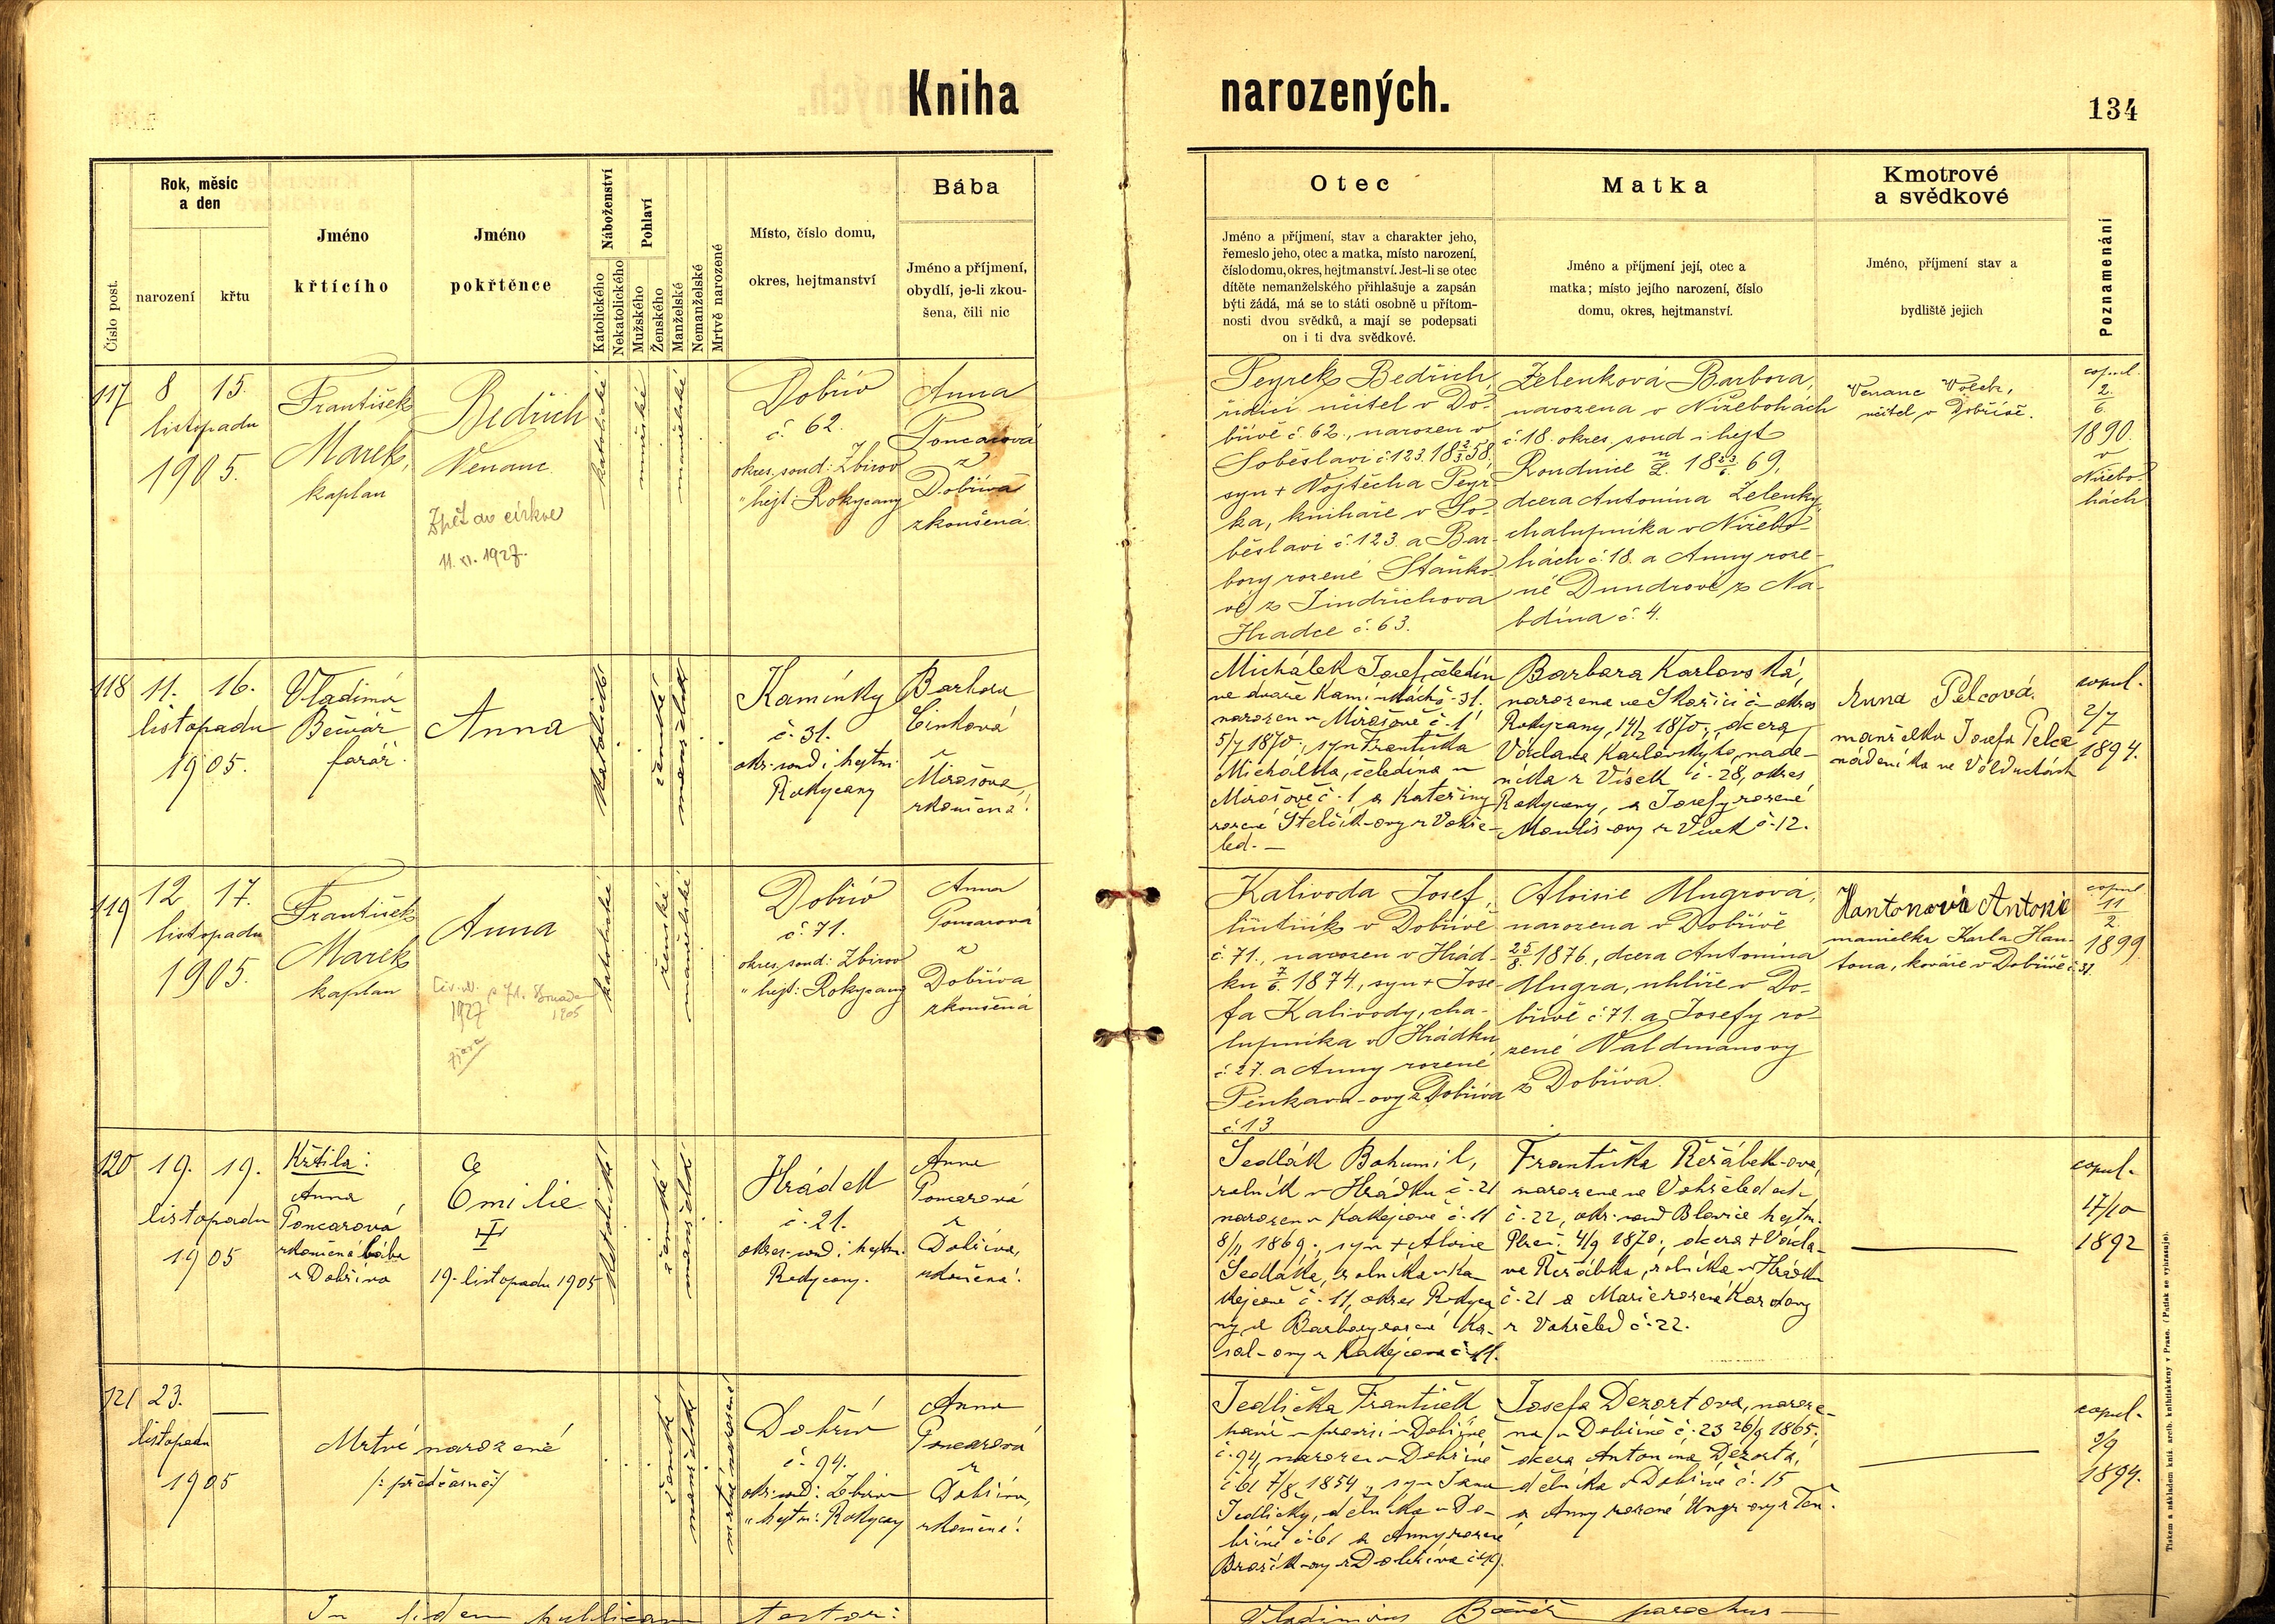 Kniha
narozených.
134
Číslo post.
Rok, měsíc
a den
narození
křtu
Jméno
křtícího
Jméno
pokřtěnce
Náboženství
Katolického
Nekatolického
Pohlaví
Mužského
Ženského
Manželské
Nemanželské
Mrtvě narozené
Místo, číslo domu,
okres, hejtmanství
Bába
Jméno a příjmení,
obydlí, je-li zkou-
šena, čili nic
Otec
Jméno a příjmení, stav a charakter jeho,
řemeslo jeho, otec a matka, místo narození,
číslo domu, okres, hejtmanství. Jest-li se otec
dítěte nemanželského přihlašuje a zapsán
býti žádá, má se to státi osobně u přítom-
nosti dvou svědků, a mají se podepsati
on i ti dva svědkové.
Matka
Jméno a příjmení její, otec a
matka; místo jejího narození, číslo
domu, okres, hejtmanství.
Kmotrové
a svědkové
Jméno, příjmení stav a
bydliště jejich
Poznamenání
117
8 15.
listopadu
1905.
František
Marek,
kaplan
Bedřich
Venanc.
Zpět do církve
11. XI. 1927.
katolické
mužské
manželské
Dobřív
č. 62.
okres. soud: Zbirov
" hejt: Rokycany
Anna
Poncarová
z
Dobříva
zkoušená
Peyrek Bedřich,
řídící učitel v Do-
břívě č. 62., narozen v
Soběslavi č. 123. 18 2/3. 58,
syn + Vojtěcha Peyr-
ka, knihaře v So-
běslavi č. 123. a Bar-
bory rozené Staňko-
vé z Jindřichova
Hradce č. 63.
Zelenková Barbora,
narozena v Nižebohách
č. 18. okres. soud i hejt
Roudnice n/L. 18 23/6. 69,
dcera Antonína Zelenky,
chalupníka v Nižebo-
hách č. 18. a Anny roze-
né Dundrové z Na-
bdína č. 4.
Venanc
učitel v Dobřívě.
copul.
2.
6.
1890.
v
Nižebo-
hách
118
11. 16.
listopadu
1905.
Vladimír
Bečvář
farář.
Anna
katolické
ženské
manželské
Kamínky
č. 31.
okr. soud i hejtm.
Rokycany
Barbora
Cinková
z
Mirošova,
zkoušená.
Michálek Josef, čeledín
ve dvoře Kamínkách č. 31.
narozen v Mirošově č. 1
5/7 1870., syn Františka
Michálka, čeledína v
Mirošově č. 1 a Kateřiny
rozené Štelcík-ovy z Vokře-
led. —
Barbara Karlovská,
narozena ve Skořici č — okres
Rokycany, 14/2 1870., dcera
Václava Karlovského, náde-
níka z Vísek č. 28, okres
Rokycany, a Josefy rozené
Moulis-ovy z Vísek č. 12.
Anna Pelcová
manželka Josefa Pelce
nádeníka ve Volduchách
copul.
2/7
1894.
119
12 17.
listopadu
1905.
František
Marek
kaplan
Anna
1927
katolické
ženské
manželské
Dobřív
č. 71.
okres. soud: Zbirov
" hejt: Rokycany
Anna
Poncarová
z
Dobříva
zkoušená
Kalivoda Josef,
hutník v Dobřívě
č. 71., narozen v Hrád-
ku 7/6. 1874., syn + Jose-
fa Kalivody, cha-
lupníka v Hrádku
č. 27. a Anny rozené
Pěnkava-ovy z Dobříva
č. 13
Aloisie Ungrová,
narozena v Dobřívě
25/8. 1876., dcera Antonína
Ungra, uhlíře v Do-
břívě č. 71. a Josefy ro-
zené Valdmanovy
z Dobříva.
Hantonová Antonie
manželka Karla Han-
tona, kováře v Dobřívě č. 31.
copul.
11
2.
1899
120
19. 19.
listopadu
1905
Křtila:
Anna
Poncarová
zkoušená bába
z Dobříva
Emilie
19. listopadu 1905
katolické
ženské
manželské
Hrádek
č. 21.
okres. soud i hejtm.
Rokycany.
Anna
Poncarová
z
Dobříva,
zkoušená.
Sedlák Bohumil,
rolník v Hrádku č. 21
narozen v Kakejcově č. 11
8/11 1869., syn + Aloise
Sedláka, rolníka v Ka-
kejcově č. 11, okres Rokyca
ny a Barbory rozené Ko-
zal-ovy z Kakejcova č. 11.
Františka Řeřábek-ova,
narozena ve Vokřeledech
č. 22, okr. soud Blovice hejtm.
Plzeň. 4/9 1870., dcera + Václa-
va Řeřábka, rolníka v Hrádku
č. 21 a Marie rozené
z Vokřeled č. 22.
copul.
17/10
1892
121
23.
listopadu
1905
Mrtvě narozené
/: předčasně:/
ženské
manželské
mrtvě narozené
Dobřív
č. 94.
okr. soud: Zbirov
" hejtm: Rokycany
Anna
Poncarová
z
Dobříva,
zkoušená.
Jedlička František
v Dobřívě
č. 94, narozen v Dobřívě
č. 61 7/8 1854., syn Jana
Jedličky, dělníka v Do-
břívě č. 61 a Anny rozené
Brožík-ovy z Dobříva č. 49.
Josefa Dezortova, naroze-
na v Dobřívě č. 23 26/9 1865.
dcera Antonína Dezorta,
dělníka v Dobřívě č. 15
a Anny rozené Ungr-ovy z Těn.
copul.
9/9
1894.
In fidem publicam testor:
Vladimirus Bečvář parochus —
Tiskem a nákladem kníž. arcib. knihtiskárny v Praze. (Patisk se vyhrazuje).